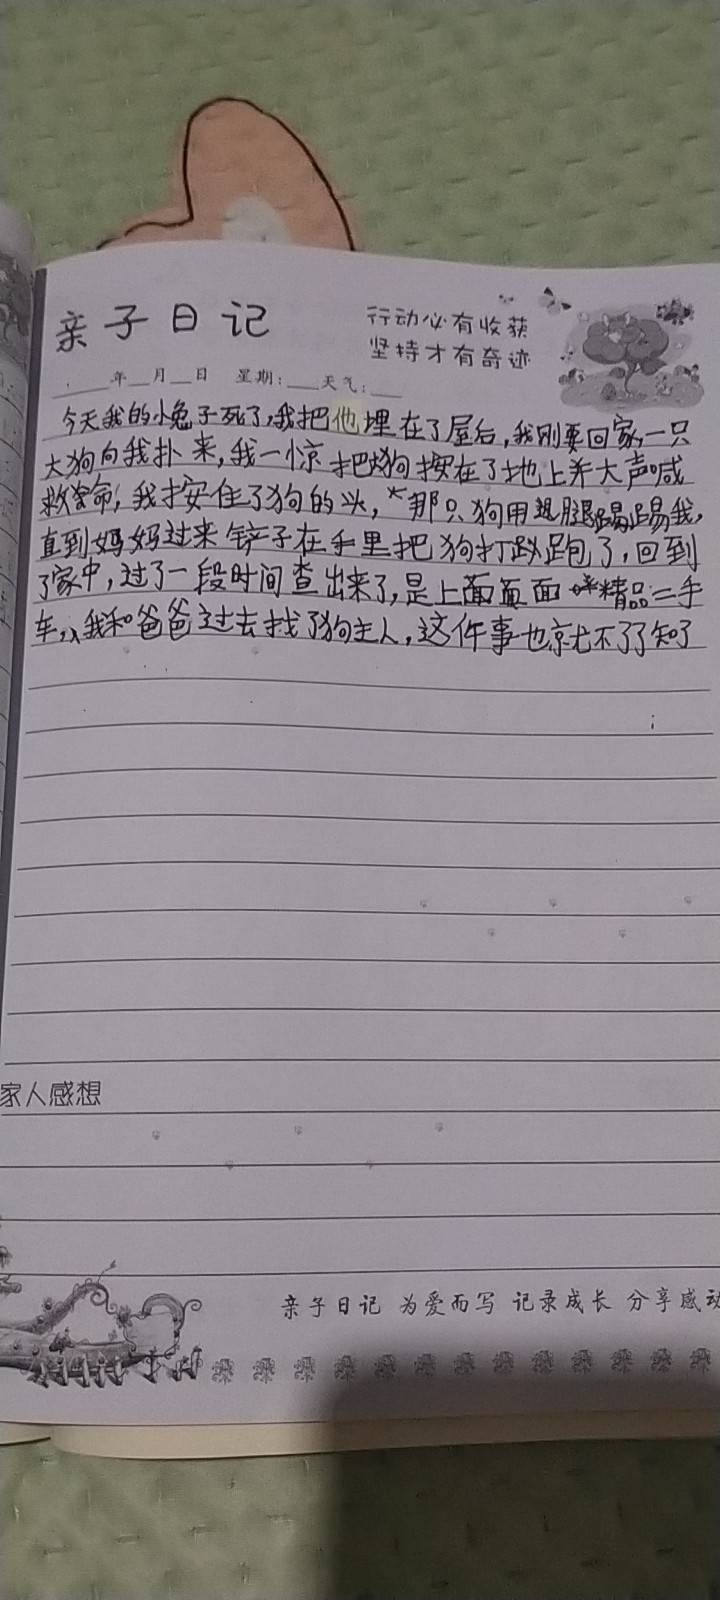 亲子日记
行动必有收获
坚持才有奇迹
年 月 日 星期: 天气:
今天我的小兔子死了,我把他埋在了屋后,我刚要回家,一只
大狗向我扑来,我一惊把狗按在了地上并大声喊
救命,我按住了狗的头,那只狗用腿踢我,
直到妈妈过来铲子在手里把狗打跑了,回到
了家中,过了一段时间查出来了,是上面 精品二手
车,我和爸爸过去找了狗主人,这件事也就不了了知了
家人感想
亲子日记 为爱而写 记录成长 分享感动